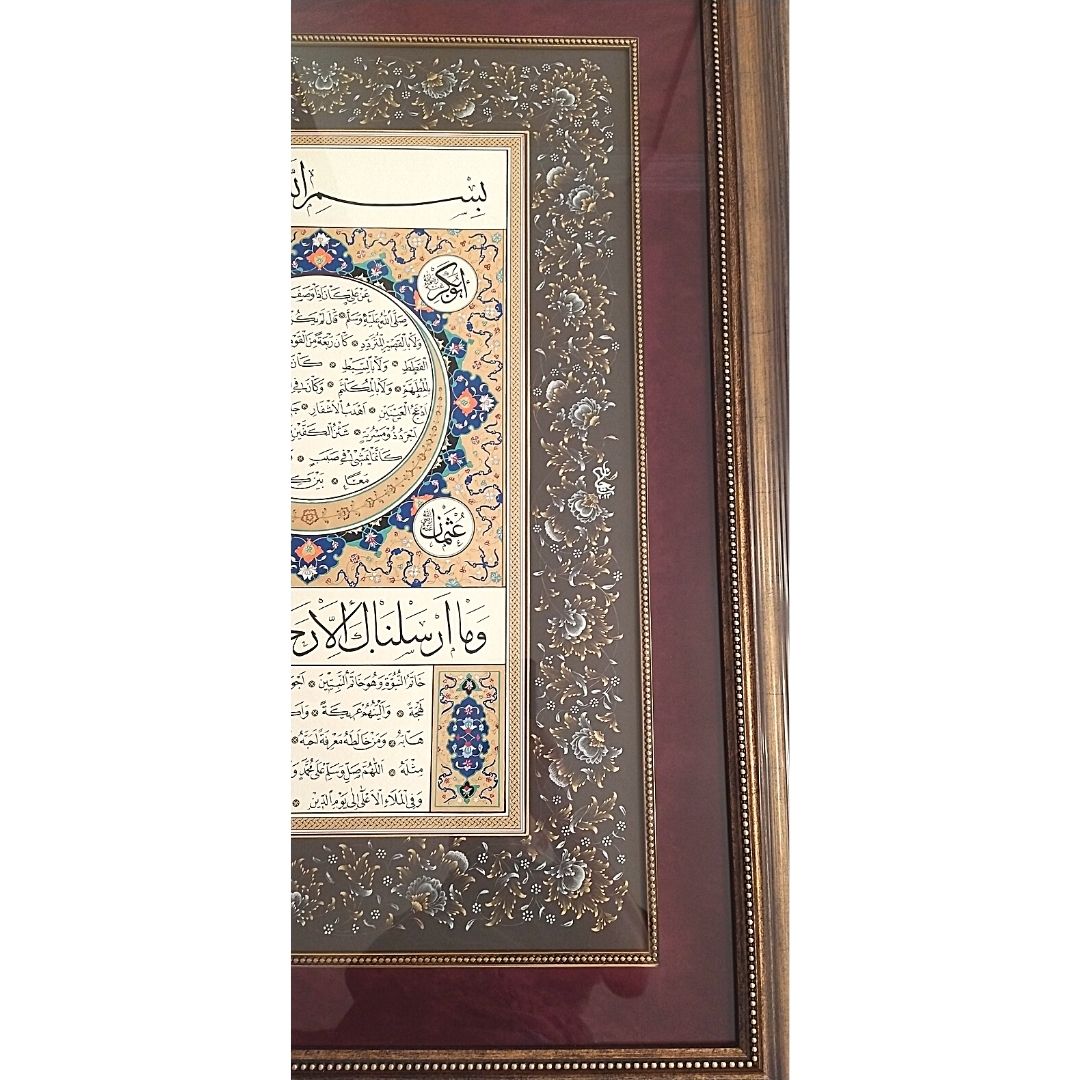 بِسْمِ
أبو بكر
عَنْ عَلِيٍّ كَانَ إِذَا وَصَفَ
صَلَّى اللهُ عَلَيْهِ وَسَلَّمَ قَالَ لَمْ يَكُنْ
وَلَا بِالْقَصِيرِ الْمُتَرَدِّدِ كَانَ رَبْعَةً مِنَ الْقَوْمِ
الْقَطَطِ وَلَا بِالسَّبِطِ كَانَ
بِالْمُطَهَّمِ وَلَا بِالْمُكَلْثَمِ وَكَانَ فِي
أَدْعَجُ الْعَيْنَيْنِ أَهْدَبُ الْأَشْفَارِ
أَجْرَدُ ذُو مَسْرُبَةٍ شَثْنُ الْكَفَّيْنِ
كَأَنَّمَا يَمْشِي فِي صَبَبٍ
مَعًا بَيْنَ
عُثْمَان
وَمَا أَرْسَلْنَاكَ إِلَّا
خَاتَمُ النُّبُوَّةِ وَهُوَ خَاتَمُ النَّبِيِّينَ
لَهْجَةً وَأَلْيَنُهُمْ عَرِيكَةً
هَابَهُ وَمَنْ خَالَطَهُ مَعْرِفَةً أَحَبَّهُ
مِثْلَهُ اَللّٰهُمَّ صَلِّ وَسَلِّمْ عَلَى مُحَمَّدٍ
وَفِي الْمَلَاءِ الْأَعْلَى إِلَى يَوْمِ الدِّينِ